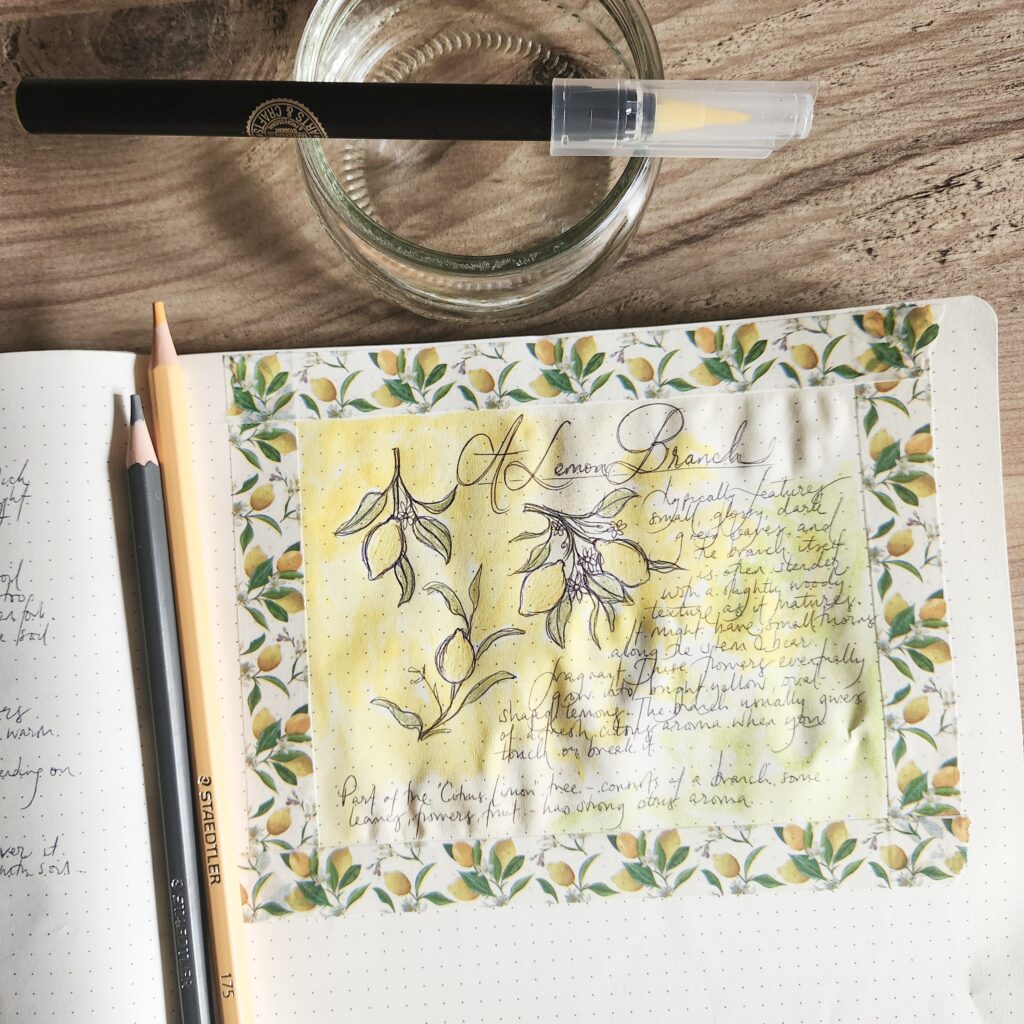 ARTS & CRAFTS
ick
ght
soil
too
a soil.
ers
warm.
ending on
over it.
with soil.
STAEDTLER
STAEDTLER
175
A Lemon Branch
typically features
small glossy, dark
green leaves, and
the branch itself
is often slender
with a slightly woody
texture as it matures.
It might have small thorns
along the stem & bear
fragrant these flowers eventually
grow into bright yellow, oval
shaped lemons. The branch usually gives
of a fresh, citrus aroma when you
touch or break it.
Part of the 'Citrus Limon' tree - consists of a branch, some
leaves, flowers, fruit - has strong citrus aroma...